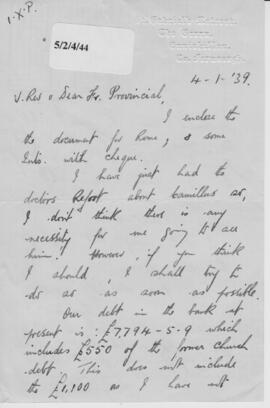 I.X.P.
5/2/4/44
St. Gabriel's Retreat,
The Graan,
Enniskillen,
Co. Fermanagh.
4-1-'39.
V. Rev & Dear Fr. Provincial,
I enclose the
the document for Rome, & some
Ints. with cheque.
I have just had the
doctors Report about Camillus so,
I don't think there is any
necessity for me going to see
him. However, if you think
I should, I shall try to
do so as soon as possible.
Our debt in the bank at
present is: £7794-5-9 which
includes £550 of the former church
debt. This does not include
the £1,100 as I have not